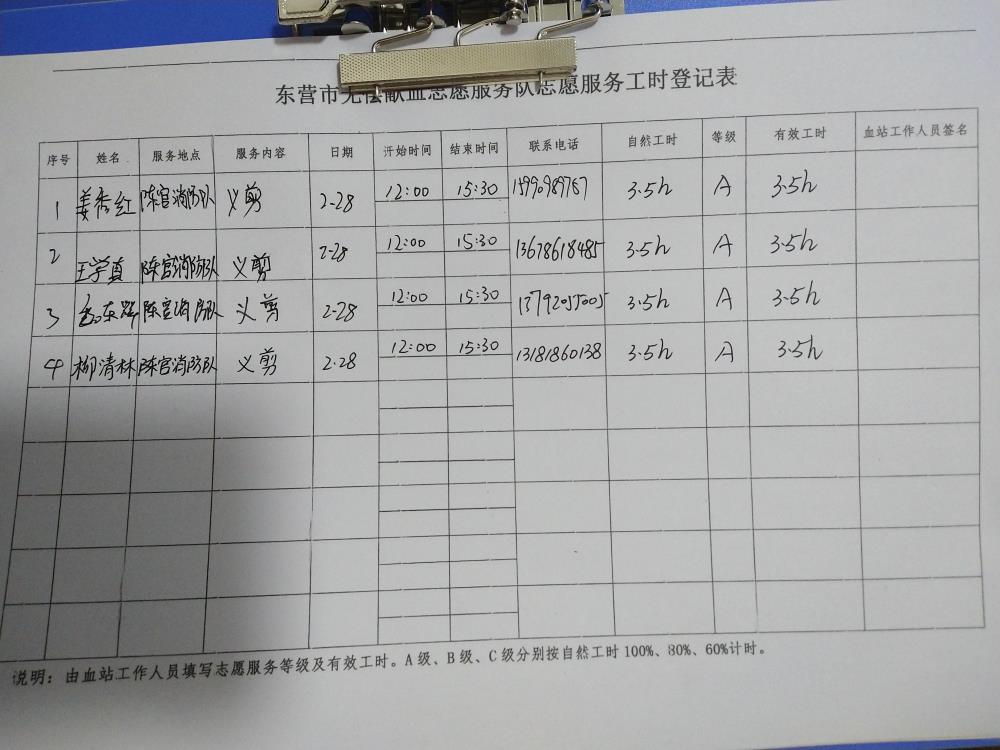 东营市无偿献血志愿服务队志愿服务工时登记表
序号 姓名 服务地点 服务内容 日期 开始时间 结束时间 联系电话 自然工时 等级 有效工时 血站工作人员签名
1 姜秀红 陈官消防队 义剪 2-28 12:00 15:30 15990989767 3.5h A 3.5h
2 王学真 陈官消防队 义剪 2-28 12:00 15:30 13678618485 3.5h A 3.5h
3 陈官消防队 义剪 2-28 12:00 15:30 13792055005 3.5h A 3.5h
4 柳清林 陈官消防队 义剪 2-28 12:00 15:30 13181860138 3.5h A 3.5h
说明：由血站工作人员填写志愿服务等级及有效工时。A级、B级、C级分别按自然工时100%、80%、60%计时。